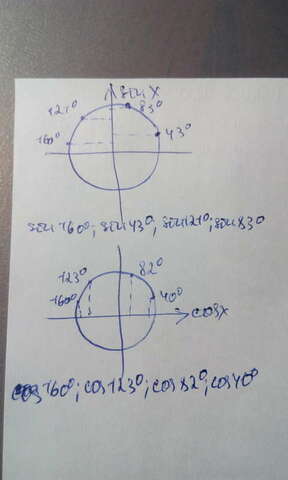 sin x
121° 83°
160° 43°
sin 160°; sin 43°, sin 121°; sin 83°
123° 82°
160° 40°
cos x
cos 160°; cos 123°; cos 82°; cos 40°